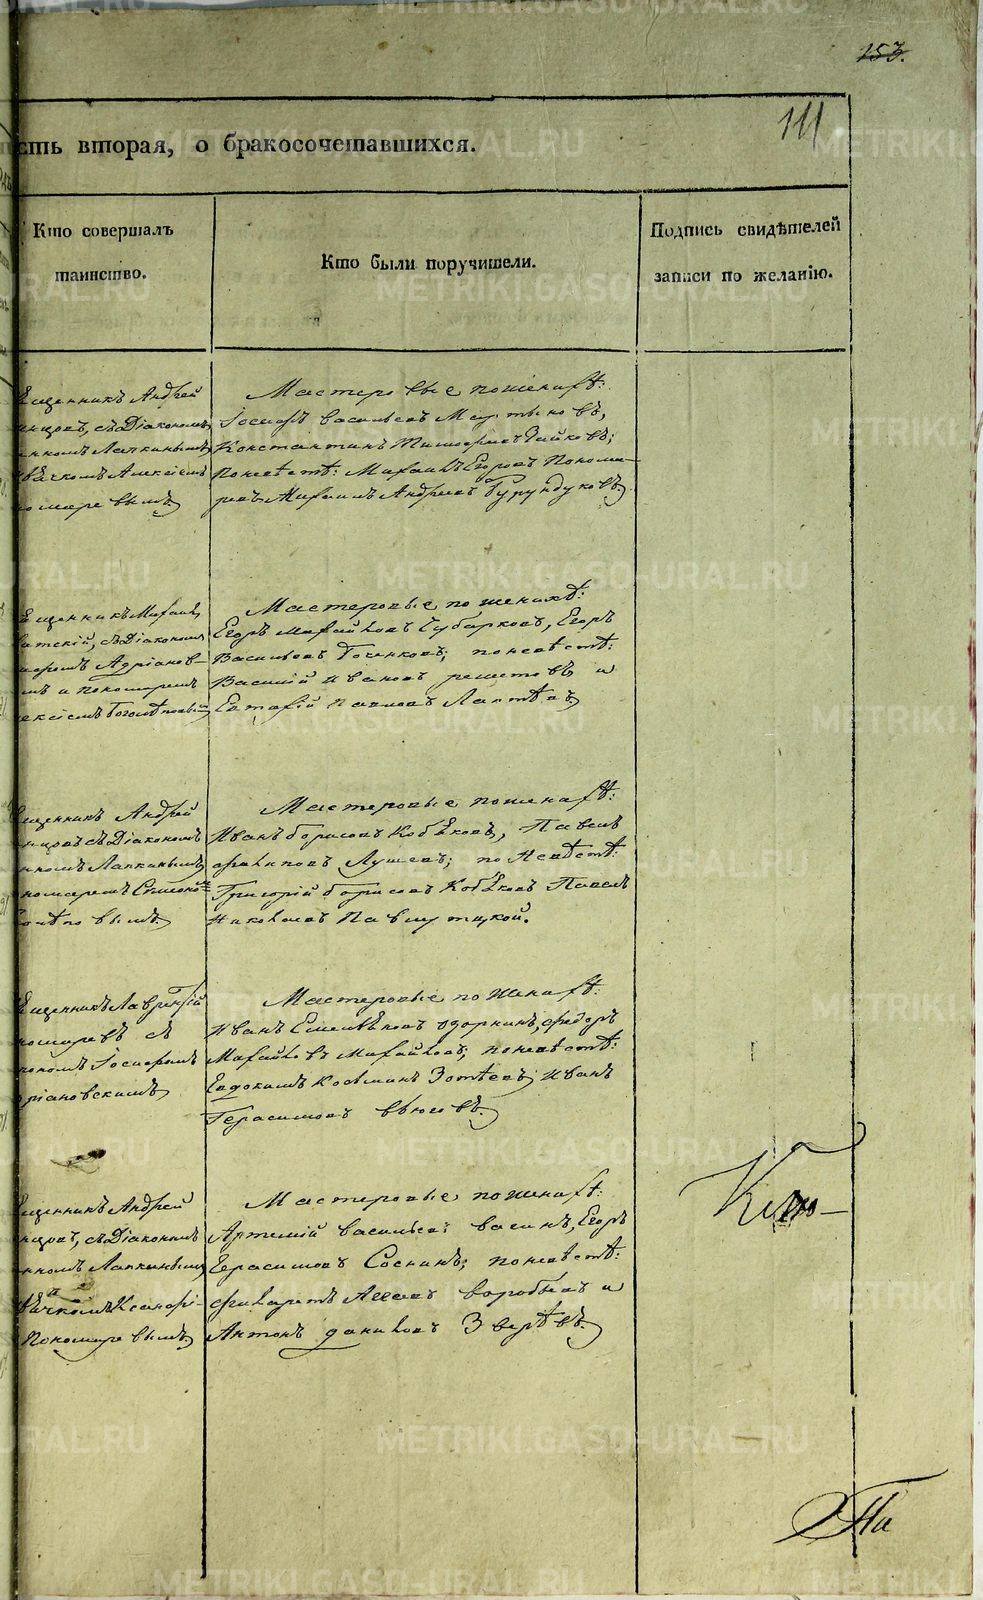 153.
111
сть вторая, о бракосочетавшихся.
Кто совершалъ
таинство.
Кто были поручители.
Подпись свидѣтелей
записи по желанію.
щенникъ Андрей
нцовъ, съ Діакономъ
нномъ Лапкинымъ
ячкомъ Алексіемъ
номаревымъ
Мастеровые по женихѣ:
Іосифъ Васильевъ Мертыновъ,
Константинъ Тимофеевъ Зайковъ;
по невѣстѣ: Михаилъ Егоровъ Понома-
ревъ Михаилъ Андреевъ Бурундуковъ
щенникъ Михаилъ
съ Діакономъ
Адріанов-
мъ и пономаремъ
ексіемъ Боголѣповымъ
Мастеровые по женихѣ:
Егоръ Михайловъ Чубарковъ, Егоръ
Васильевъ Гоченковъ; по невѣстѣ:
Василій Ивановъ Решетовъ и
Евтафій Павловъ Лаптевъ
щенникъ Андрей
нцовъ съ Діакономъ
нномъ Лапкинымъ
номаремъ Симеономъ
голѣповымъ
Мастеровые по женихѣ:
Иванъ Борисовъ Кобяковъ, Павелъ
Филиповъ Лушевъ; по невѣстѣ:
Григорій Борисовъ Кобяковъ Павелъ
Николаевъ Павлутцкой.
щенникъ Лаврентій
номаревъ съ
кономъ Іосифомъ
ріановскимъ
Мастеровые по женихѣ:
Иванъ Емельяновъ Одоркинъ, Федоръ
Михайловъ Михайловъ; по невѣстѣ:
Евдокимъ Козьминъ Зотѣевъ; Иванъ
Герасимовъ Вьюговъ
щенникъ Андрей
нцовъ, съ Діакономъ
нномъ Лапкинымъ
ячкомъ Ксеноф-
Пономаревымъ
Мастеровые по женихѣ:
Артемій Васильевъ Васинъ, Егоръ
Герасимовъ Соснинъ; по невѣстѣ:
Филаретъ Агеевъ Воробьевъ и
Антонъ Даниловъ Звѣревъ
METRIKI.GASO-URAL.RU